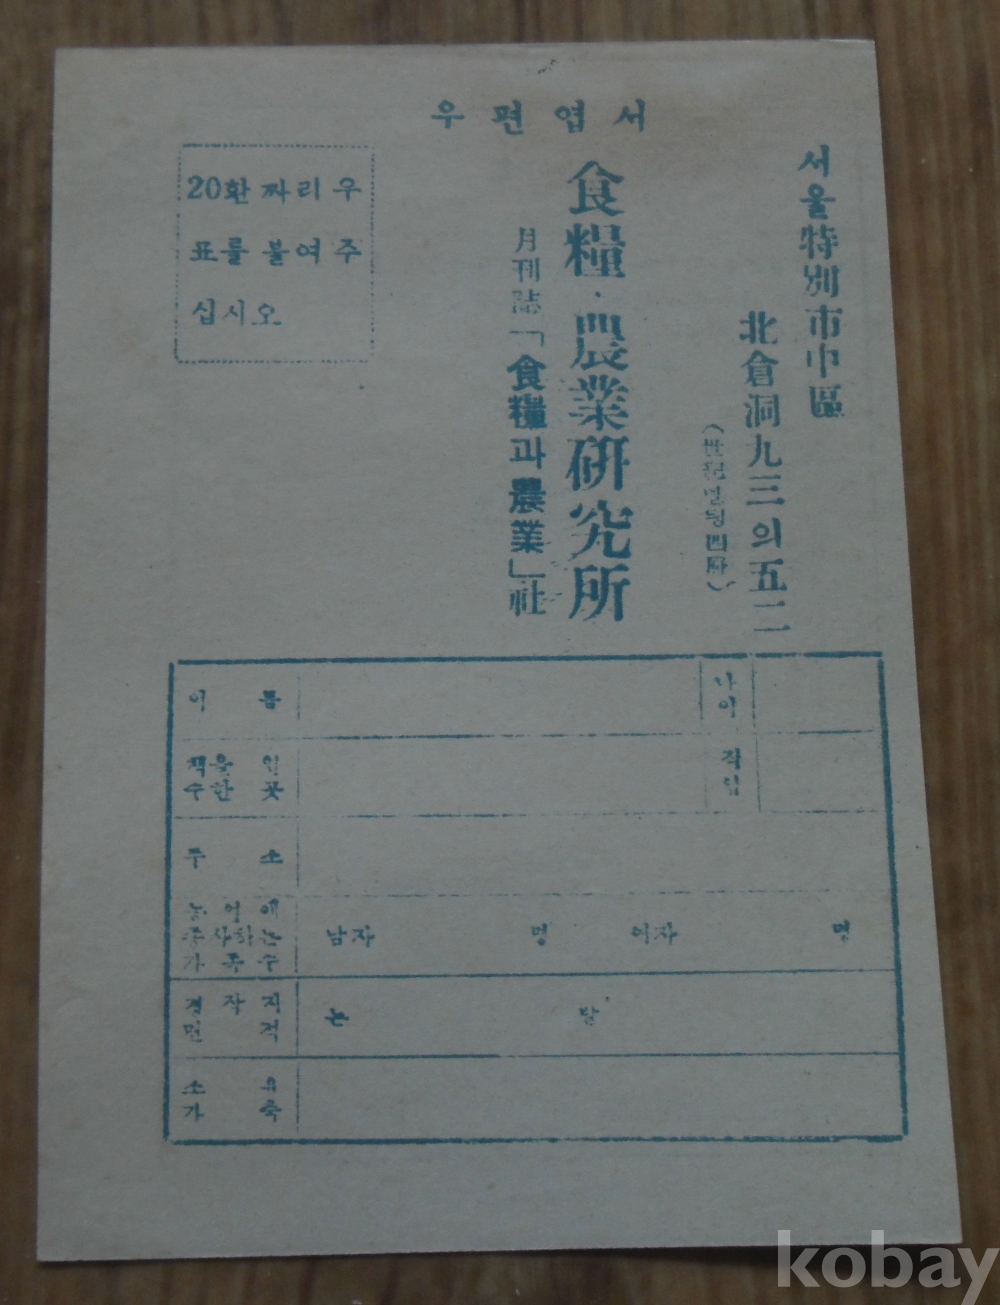 우편엽서
20환 짜리 우
표를 붙여 주
십시오
서울特別市中區
北倉洞九三의五二
(世紀빌딩四层)
食糧·農業硏究所
月刊誌「食糧과農業」社
이 름
나이
책을 읽
수한 곳
직업
주 소
농 어 에
종사하는
가 족 수
남자 명 여자 명
경 작 지
면 적
논 밭
소 유
가 축
kobay